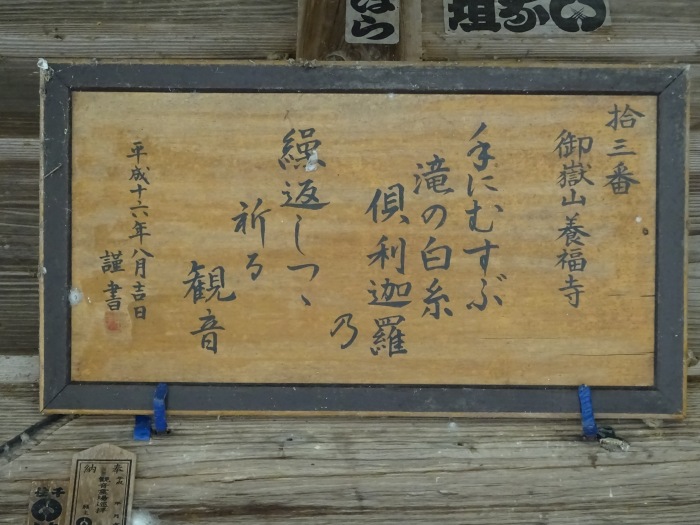 拾三番
御嶽山養福寺
手にむすぶ
滝の白糸
倶利迦羅
乃
繰返しつゝ
祈る
観音
平成十六年八月吉日
謹書
奉
納